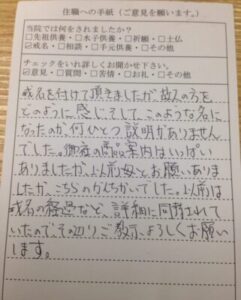 住職への手紙（ご意見を願います。）
当院では何をされましたか？
□先祖供養・□水子供養・□祈願・□土仏
☑戒名・□相談・□手元供養・□その他
チェックをいれ詳しくお聞かせ下さい。
☑意見・□質問・□苦情・□お礼・□その他
戒名を付けて頂きましたが、故人の方を
どのように感じそして、このような名に
なったのか、何ひとつ説明がありません
でした。御寺の商品案内はいっぱい
ありましたが、以前、母も、お願いありま
したが、こちらのかんちがいでした。以前は
戒名の経歴など、詳細に同封されて
いたので、その辺りご教示、よろしくお願い
します。